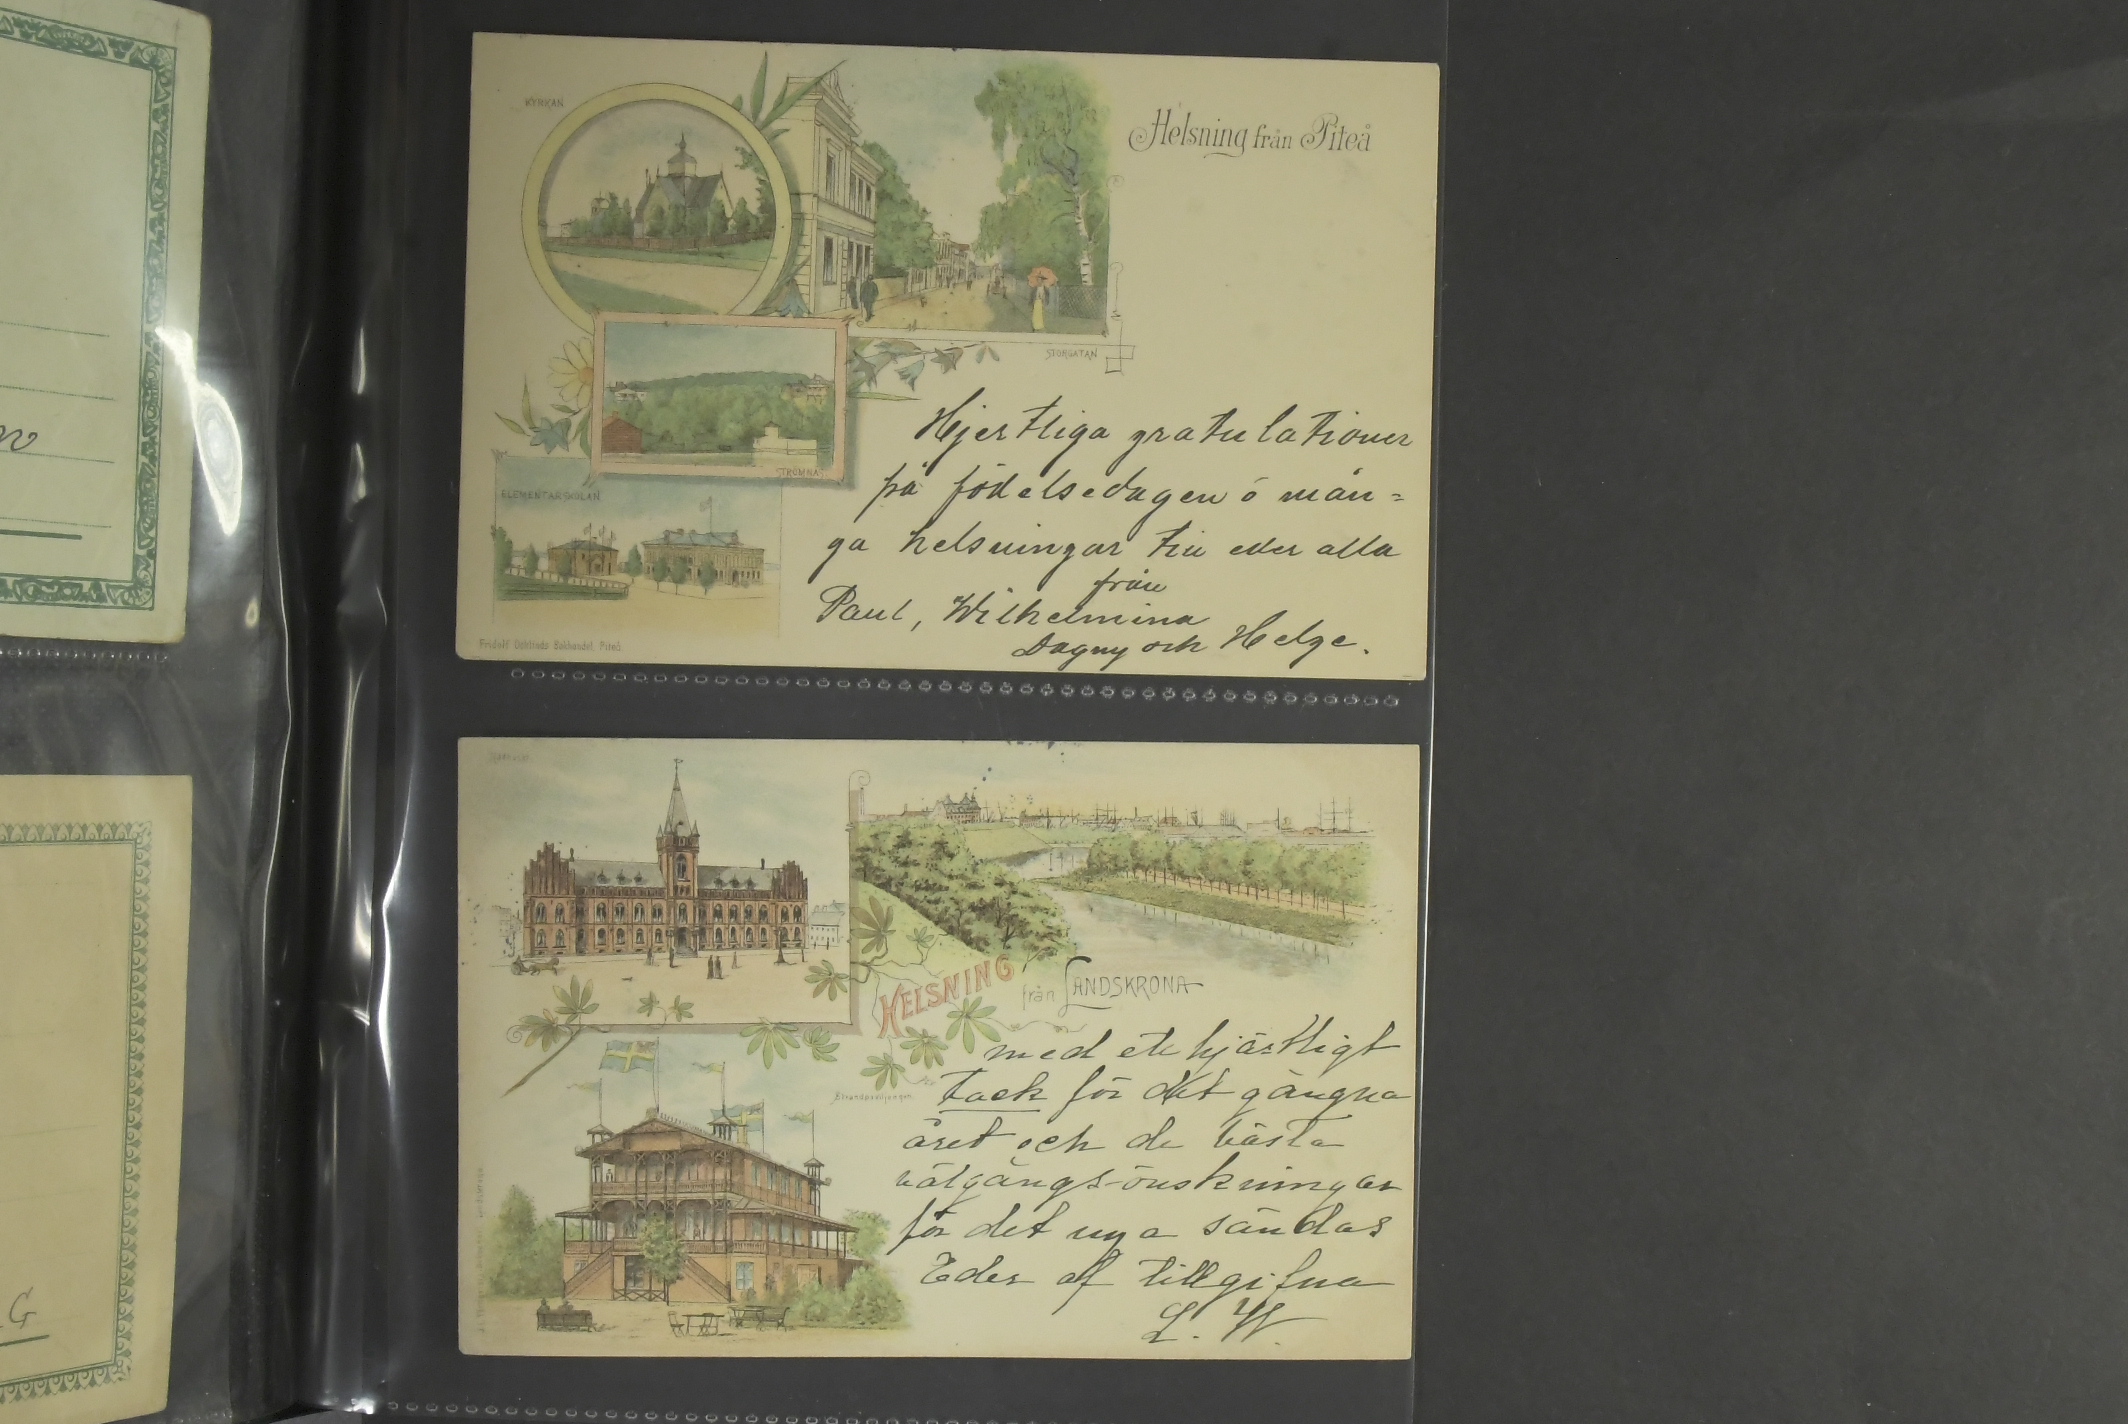 KYRKAN
Helsning från Piteå
STORGATAN
STRÖMNÄS
ELEMENTARSKOLAN
Hjertliga gratulationer
på födelsedagen o mån=
ga helsningar till eder alla
från
Paul, Wilhelmina
Dagny och Helge.
Bokhandel, Piteå
HELSNING
från LANDSKRONA
med ett hjärtligt
tack för det gångna
Strandpaviljongen
året och de bästa
välgångs-önskningar
för det nya sändas
Eder af tillgifna
L. W.
G